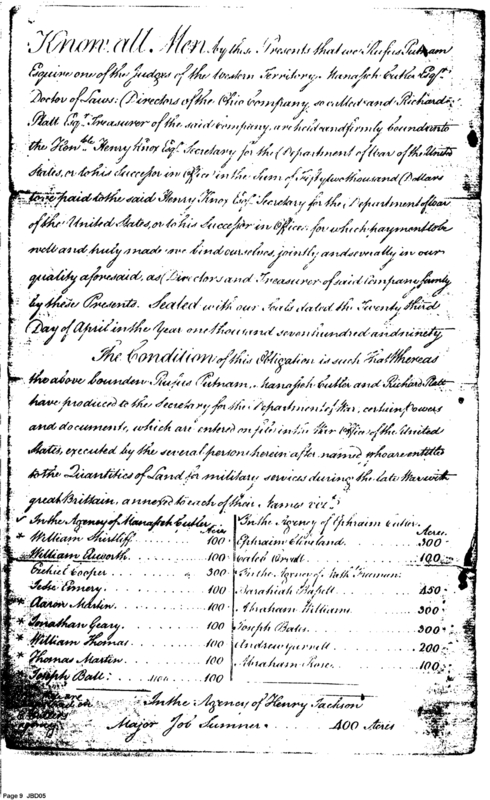 Know all Men by these Presents that we Rufus Putnam
Esquire one of the Judges of the Western Territory Manasseh Cutler Esqr
Doctor of Laws (Directors of the Ohio Company, so called and Richard
Platt Esqr Treasurer of the said Company, are held and firmly bound unto
the Honble Henry Knox Esqr Secretary for the Department of War of the United
States, or to his Successor in Office in the Sum of Fifty two thousand Dollars
to be paid to the said Henry Knox Esqr Secretary for the Department of War
of the United States, or to his Successor in Office: for which payment to be
well and truly made we bind ourselves, jointly and severally in our
quality aforesaid, as Directors and Treasurer of said Company firmly
by these Presents. Sealed with our Seals dated the Twenty third
Day of April in the Year one thousand seven hundred and ninety
The Condition of this Obligation is such That Whereas
the above bounden Rufus Putnam, Manasseh Cutler and Richard Platt
have produced to the Secretary for the Department of War, certain Powers
and documents, which are entered on file in the War Office of the United
States, executed by the several persons herein after named who are entitled
to the Quantities of Land for military services during the late War with
great Brittain, annexed to each of their Names vizt
In the Agency of Manasseh Cutler
Acres
William Shirtliff 100
William Acworth 100
Ezekiel Cooper 300
Jesse Emery 100
Aaron Martin 100
Jonathan Geary 100
William Thomas 100
Thomas Martin 100
Joseph Ball: 100
In the Agency of Ephraim Cutler
Acres
Ephraim Cleveland 300
Caleb 100
In the Agency of Nathl Freeman
450
Abraham Williams 300
Joseph Bates 300
Andrew Garrett 200
Abraham Rose 100
are
In the Agency of Henry Jackson
Major Job Sumner 400 Acres
Page 9 JBD05